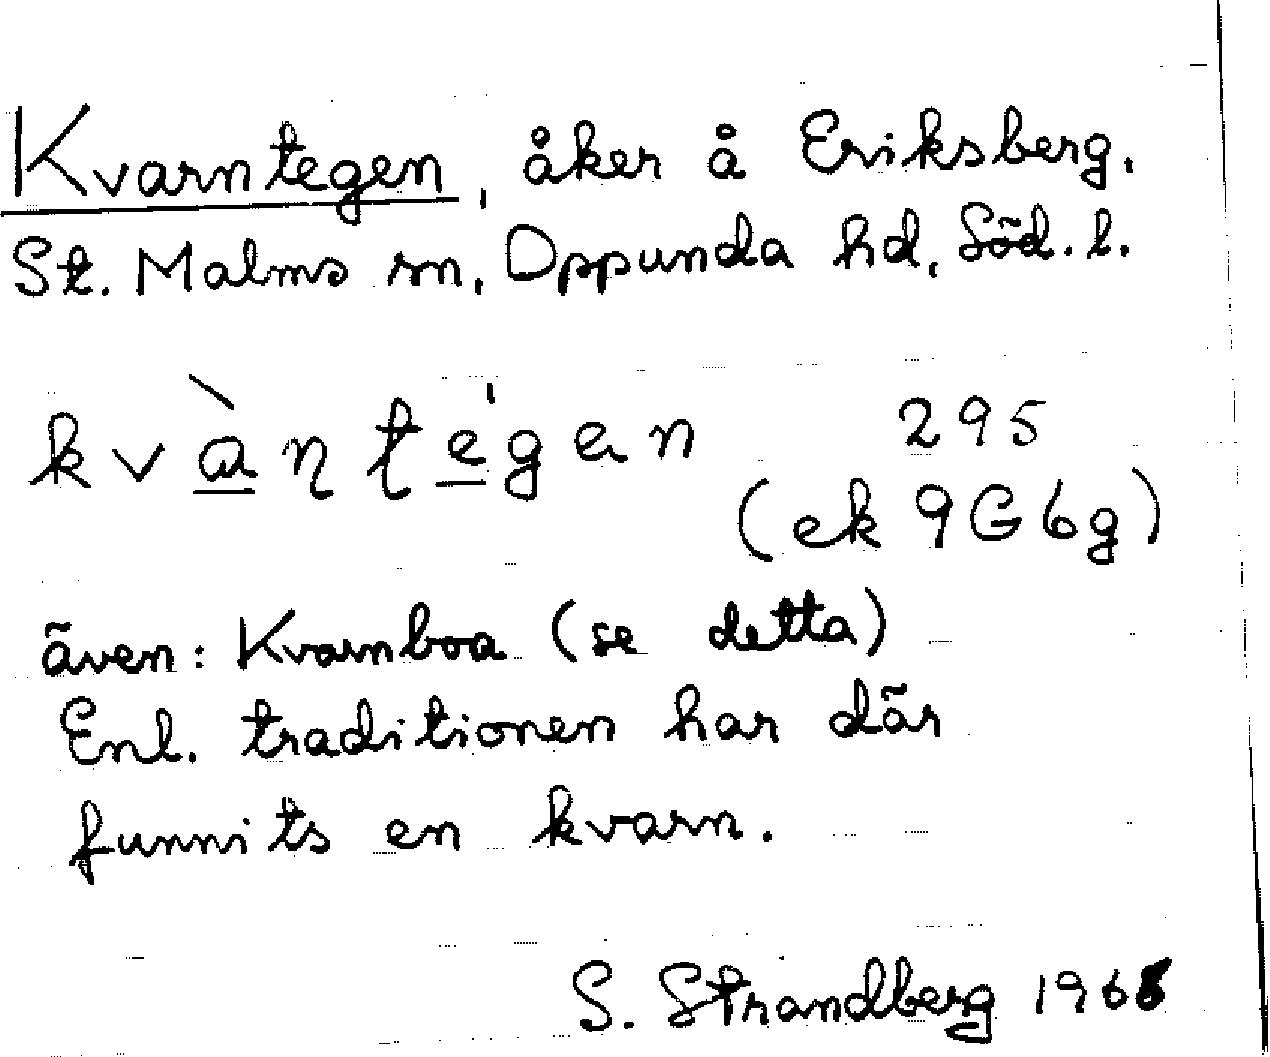 Kvarntegen, åker å Eriksberg,
St. Malms sn, Oppunda hd, Söd. l.
kvàṇṭégen 295
(ek 9G6g)
även: Kvarnboa (se detta)
Enl. traditionen har där
funnits en kvarn.
S. Strandberg